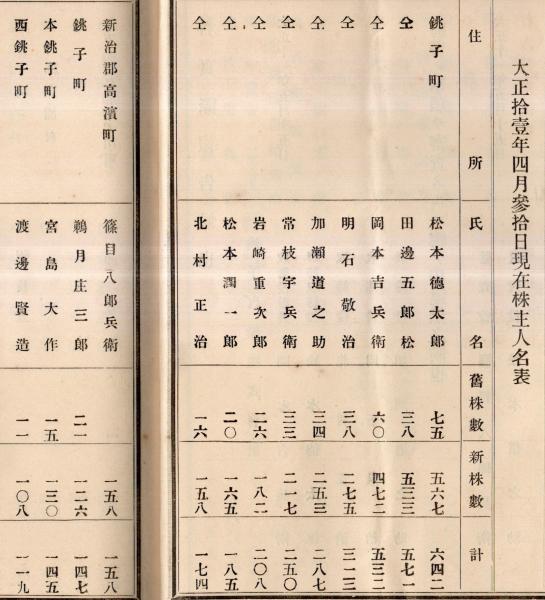 大正拾壹年四月參拾日現在株主人名表
住所 氏名 舊株數 新株數 計
銚子町 松本德太郎 七五 五六七 六四二
仝 田邊五郎松 三八 五三三 五七一
仝 岡本吉兵衛 六〇 四七二 五三二
仝 明石敬治 三八 二七五 三一三
仝 加瀬道之助 三四 二五三 二八七
仝 常枝宇兵衛 三三 二一七 二五〇
仝 岩崎重次郎 二六 一八二 二〇八
仝 松本潤一郎 二〇 一六五 一八五
仝 北村正治 一六 一五八 一七四
新治郡高濱町 篠目八郎兵衛 一五八 一五八
銚子町 鵜月庄三郎 二一 一二六 一四七
本銚子町 宮島大作 一五 一三〇 一四五
西銚子町 渡邊賢造 一一 一〇八 一一九